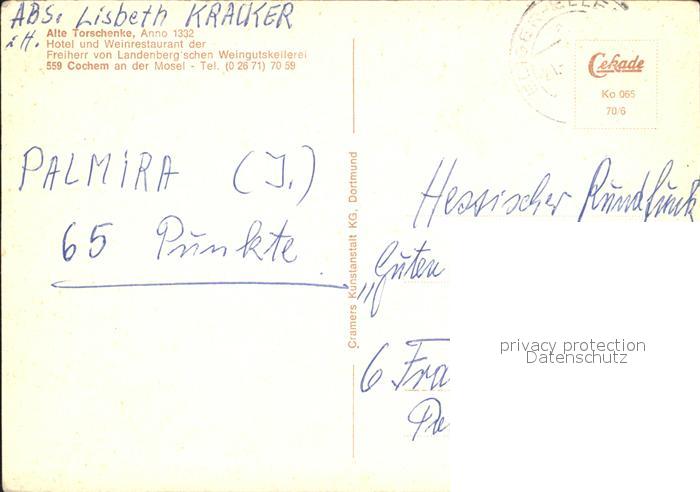 ABS. Lisbeth KRACKER
i.H.
Alte Torschenke, Anno 1332
Hotel und Weinrestaurant der
Freiherr von Landenberg'schen Weingutskellerei
559 Cochem an der Mosel - Tel. (0 26 71) 70 59
Cekade
Ko 065
70/6
PALMIRA (J.)
65 Punkte
Cramers Kunstanstalt KG, Dortmund
Hessischer Rundfunk
„Guten
6 Fra
privacy protection
Datenschutz